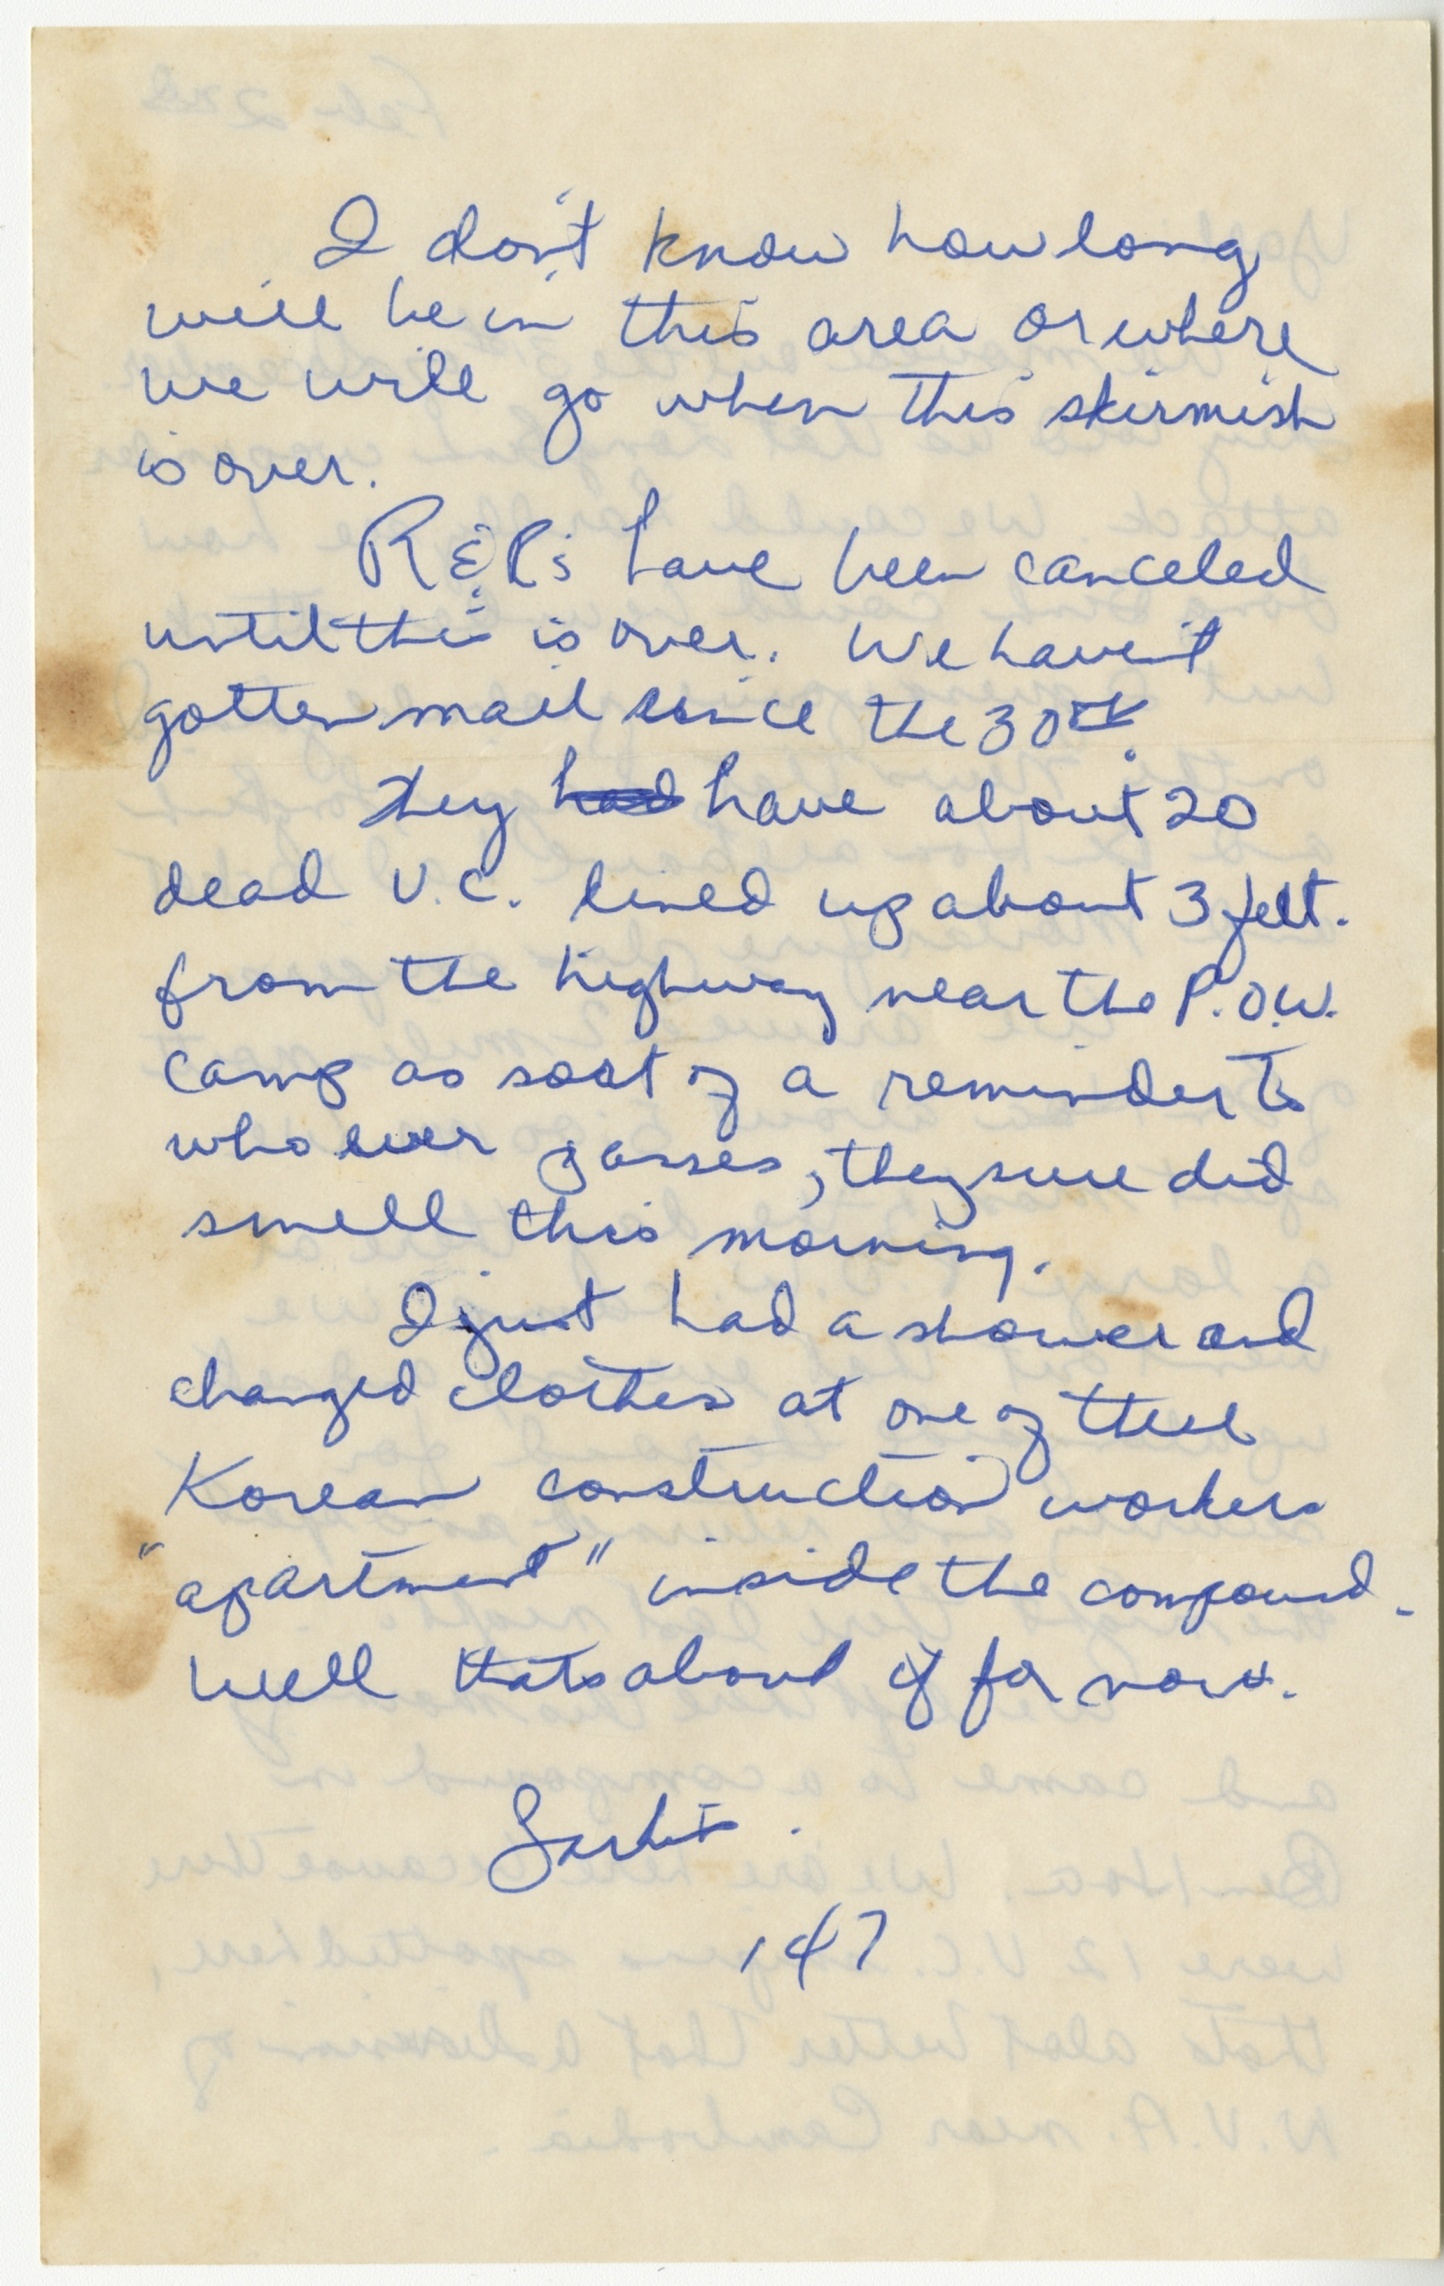 I don't know how long
we'll be in this area or where
we will go when this skirmish
is over.
R & R's have been canceled
until this is over. We haven't
gotten mail since the 30th.
They had have about 20
dead V.C. lined up about 3 feet.
from the highway near the P.O.W.
camp as sort of a reminder to
who ever passes, they sure did
smell this morning.
I just had a shower and
changed clothes at one of these
Korean construction workers
"apartment" inside the compound.
Well thats about if for now.
147